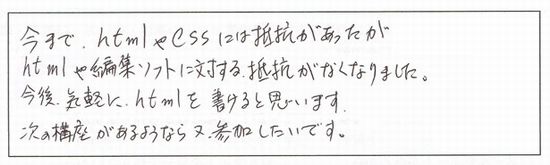 今まで、htmlやCSSには抵抗があったが
htmlや編集ソフトに対する、抵抗がなくなりました。
今後、気軽に、htmlを書けると思います。
次の構座があるようなら又、参加したいです。